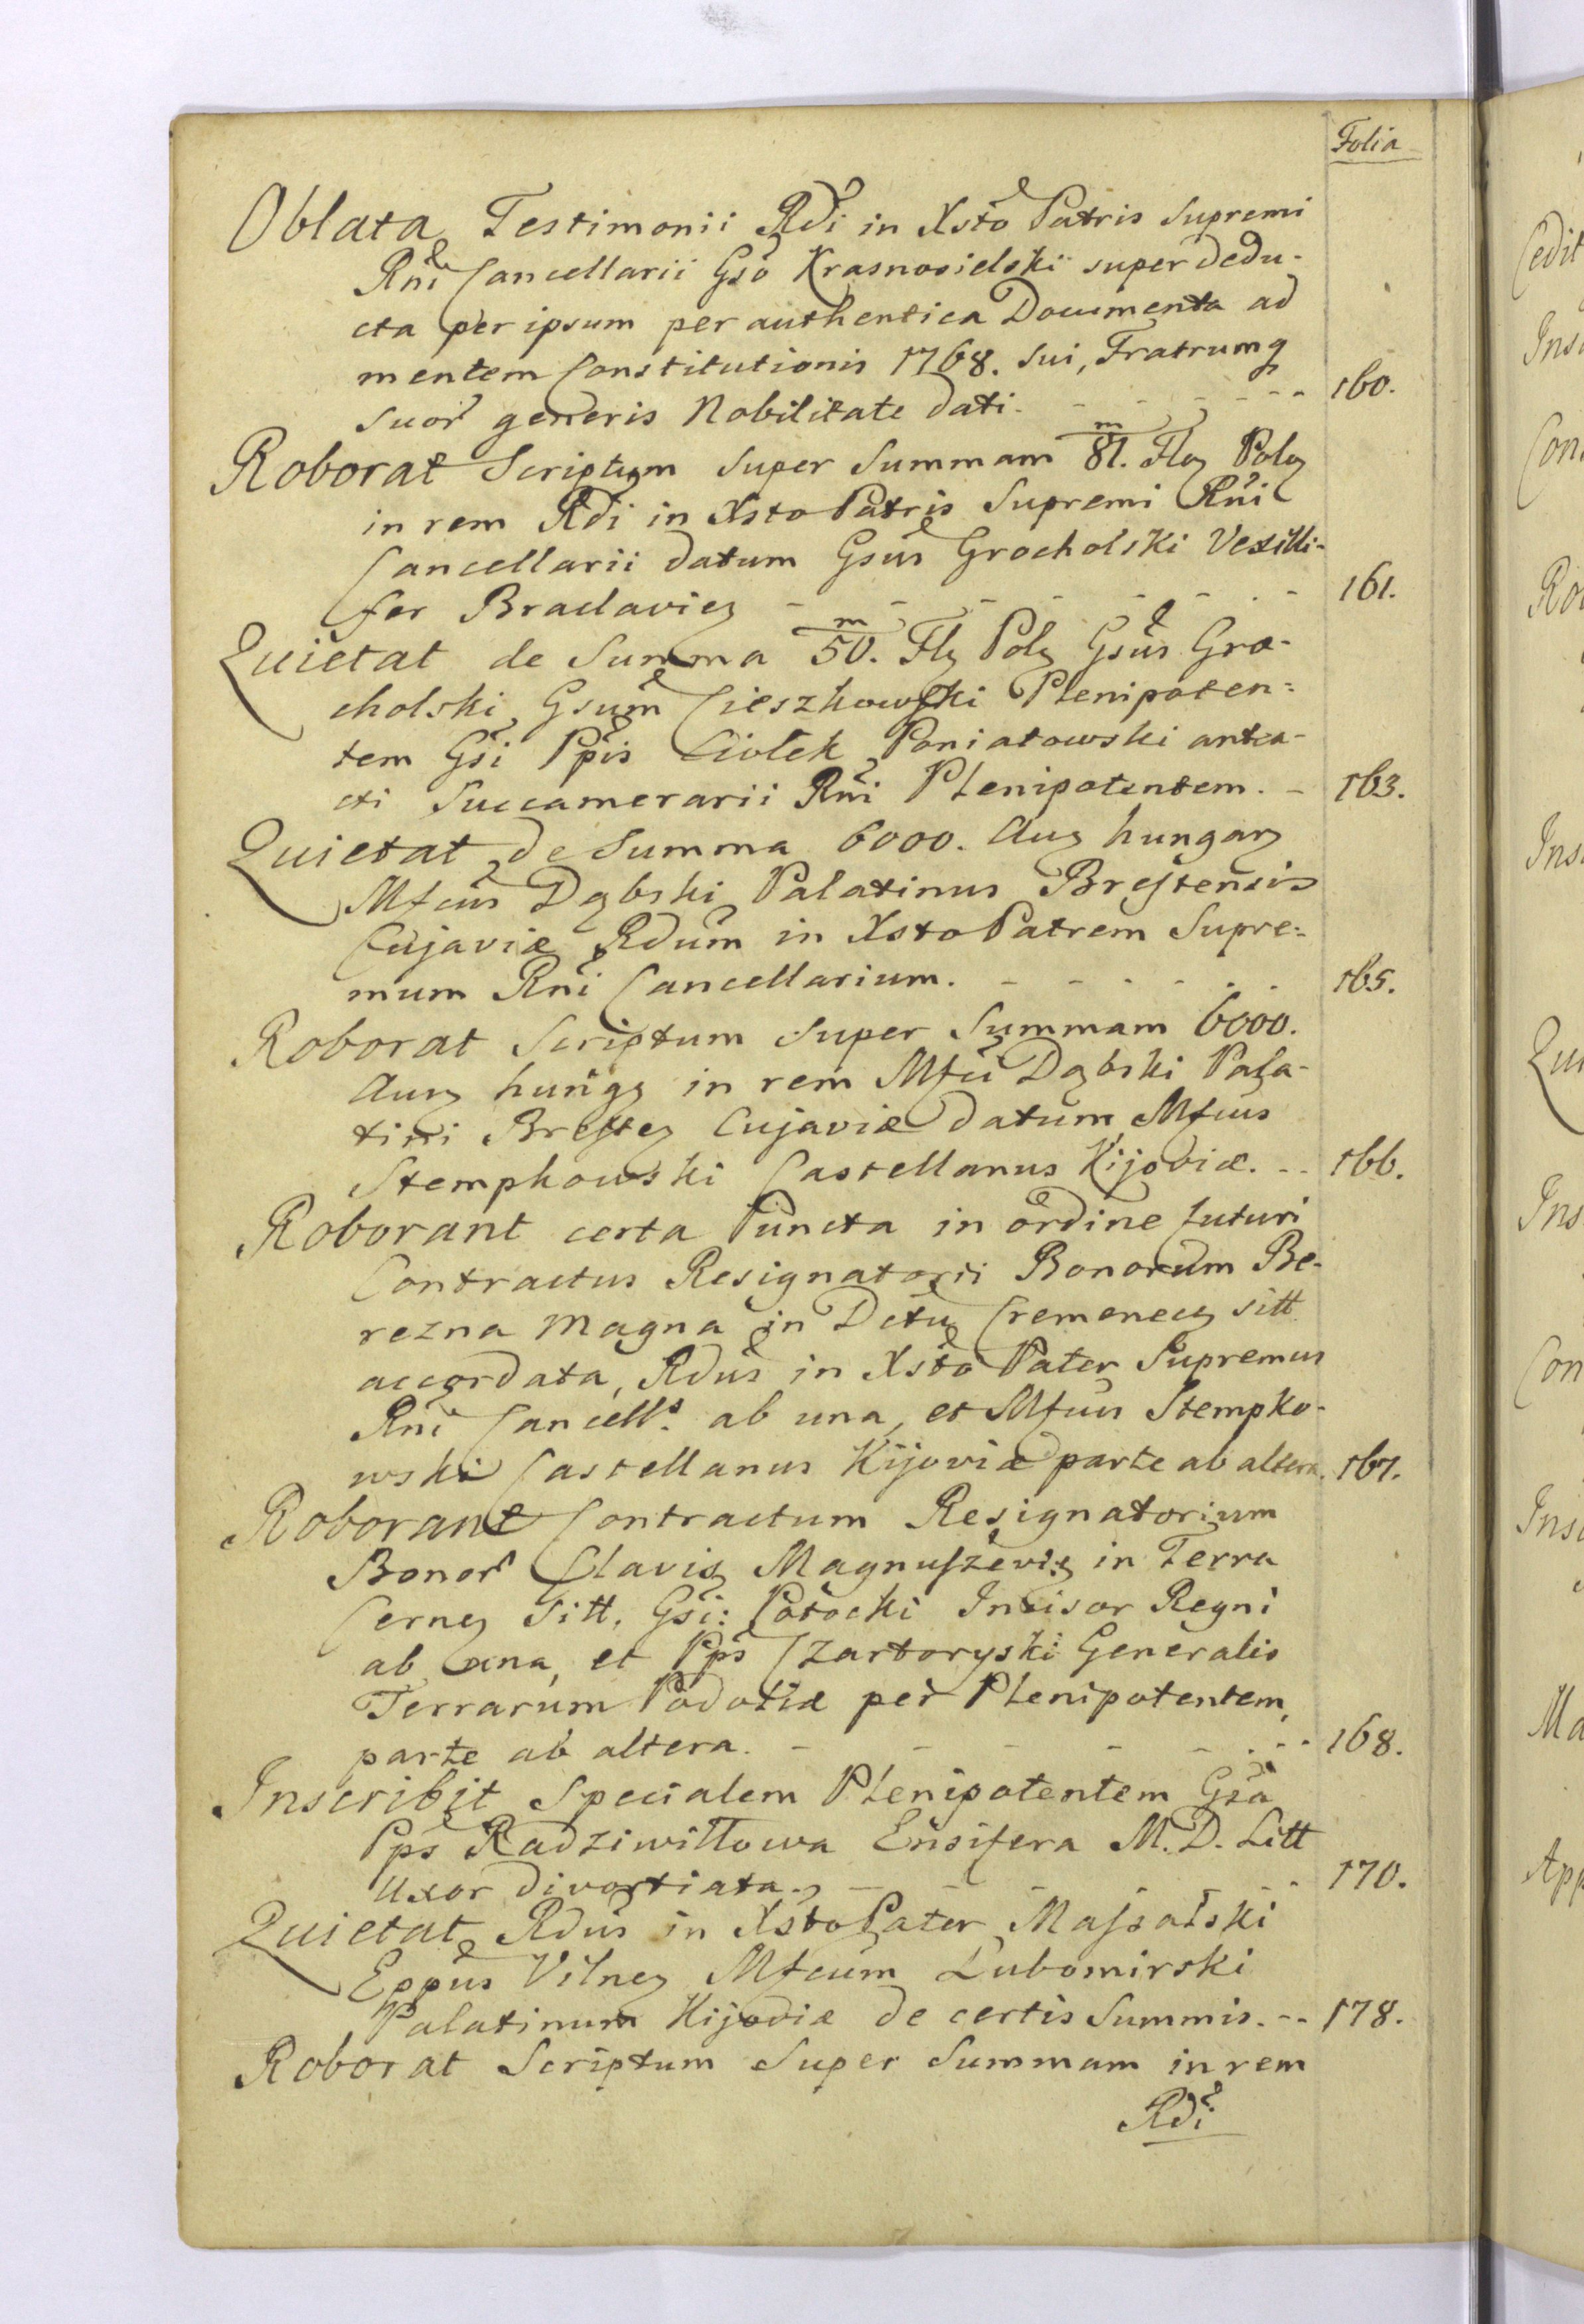 Folia
Oblata Testimonii Rdi in Xsto Patris Supremi
Rni Cancellarii Gso Krasnosielski super dedu-
cta per ipsum per authentica Documenta ad
mentem Constitutionis 1768. Sui, Fratrumq
suor generis Nobilitate dati. 160.
Roborat Scriptum super Summam m 81. Flor Polor
in rem Rdi in Xsto Patris Supremi Rni
Cancellarii datum Gsus Grocholski Vexilli-
fer Braclavien 161.
Quietat de Summa m 50. Flr Polr Gsus Gro-
cholski Gsum Cieszkowski Plenipoten=
tem Gsi Ppis Ciołek Poniatowski antea-
cti Succamerarii Rni Plenipotentem. 163.
Quietat de Summa 6000. Aur hungar
Mfcus Dąbski Palatinus Brestensis
Cujaviæ Rdum in Xsto Patrem Supre=
mum Rni Cancellarium. 165.
Roborat Scriptum super Summam 6000.
Aur hungr in rem Mfci Dąbski Pala-
tini Bresten Cujaviæ datum Mfcus
Stempkowski Castellanus Kijoviæ. 166.
Roborant certa Puncta in ordine futuri
Contractus Resignatorii Bonorum Be-
rezna Magna in Dctu Cremenecen sitt
accordata, Rdus in Xsto Pater Supremus
Rni Cancells. ab una, et Mfcus Stempko-
wski Castellanus Kijoviæ parte ab altera. 167.
Roborant Contractum Resignatorium
Bonor Clavis Magnuszevien in Terra
Cernen Sitt. Gsi: Potocki Incisor Regni
ab una, et Pps Czartoryski Generalis
Terrarum Podoliæ per Plenipotentem,
parte ab altera. 168.
Inscribit Specialem Plenipotentem Gsa
Pps Radziwiłłowa Ensifera M. D. Litt
Uxor divortiata. 170.
Quietat Rdus in Xsto Pater Massalski
Eppus Vilnen Mfcum Lubomirski
Palatinum Kijoviæ de certis Summis. 178.
Roborat Scriptum super Summam in rem
Rdi